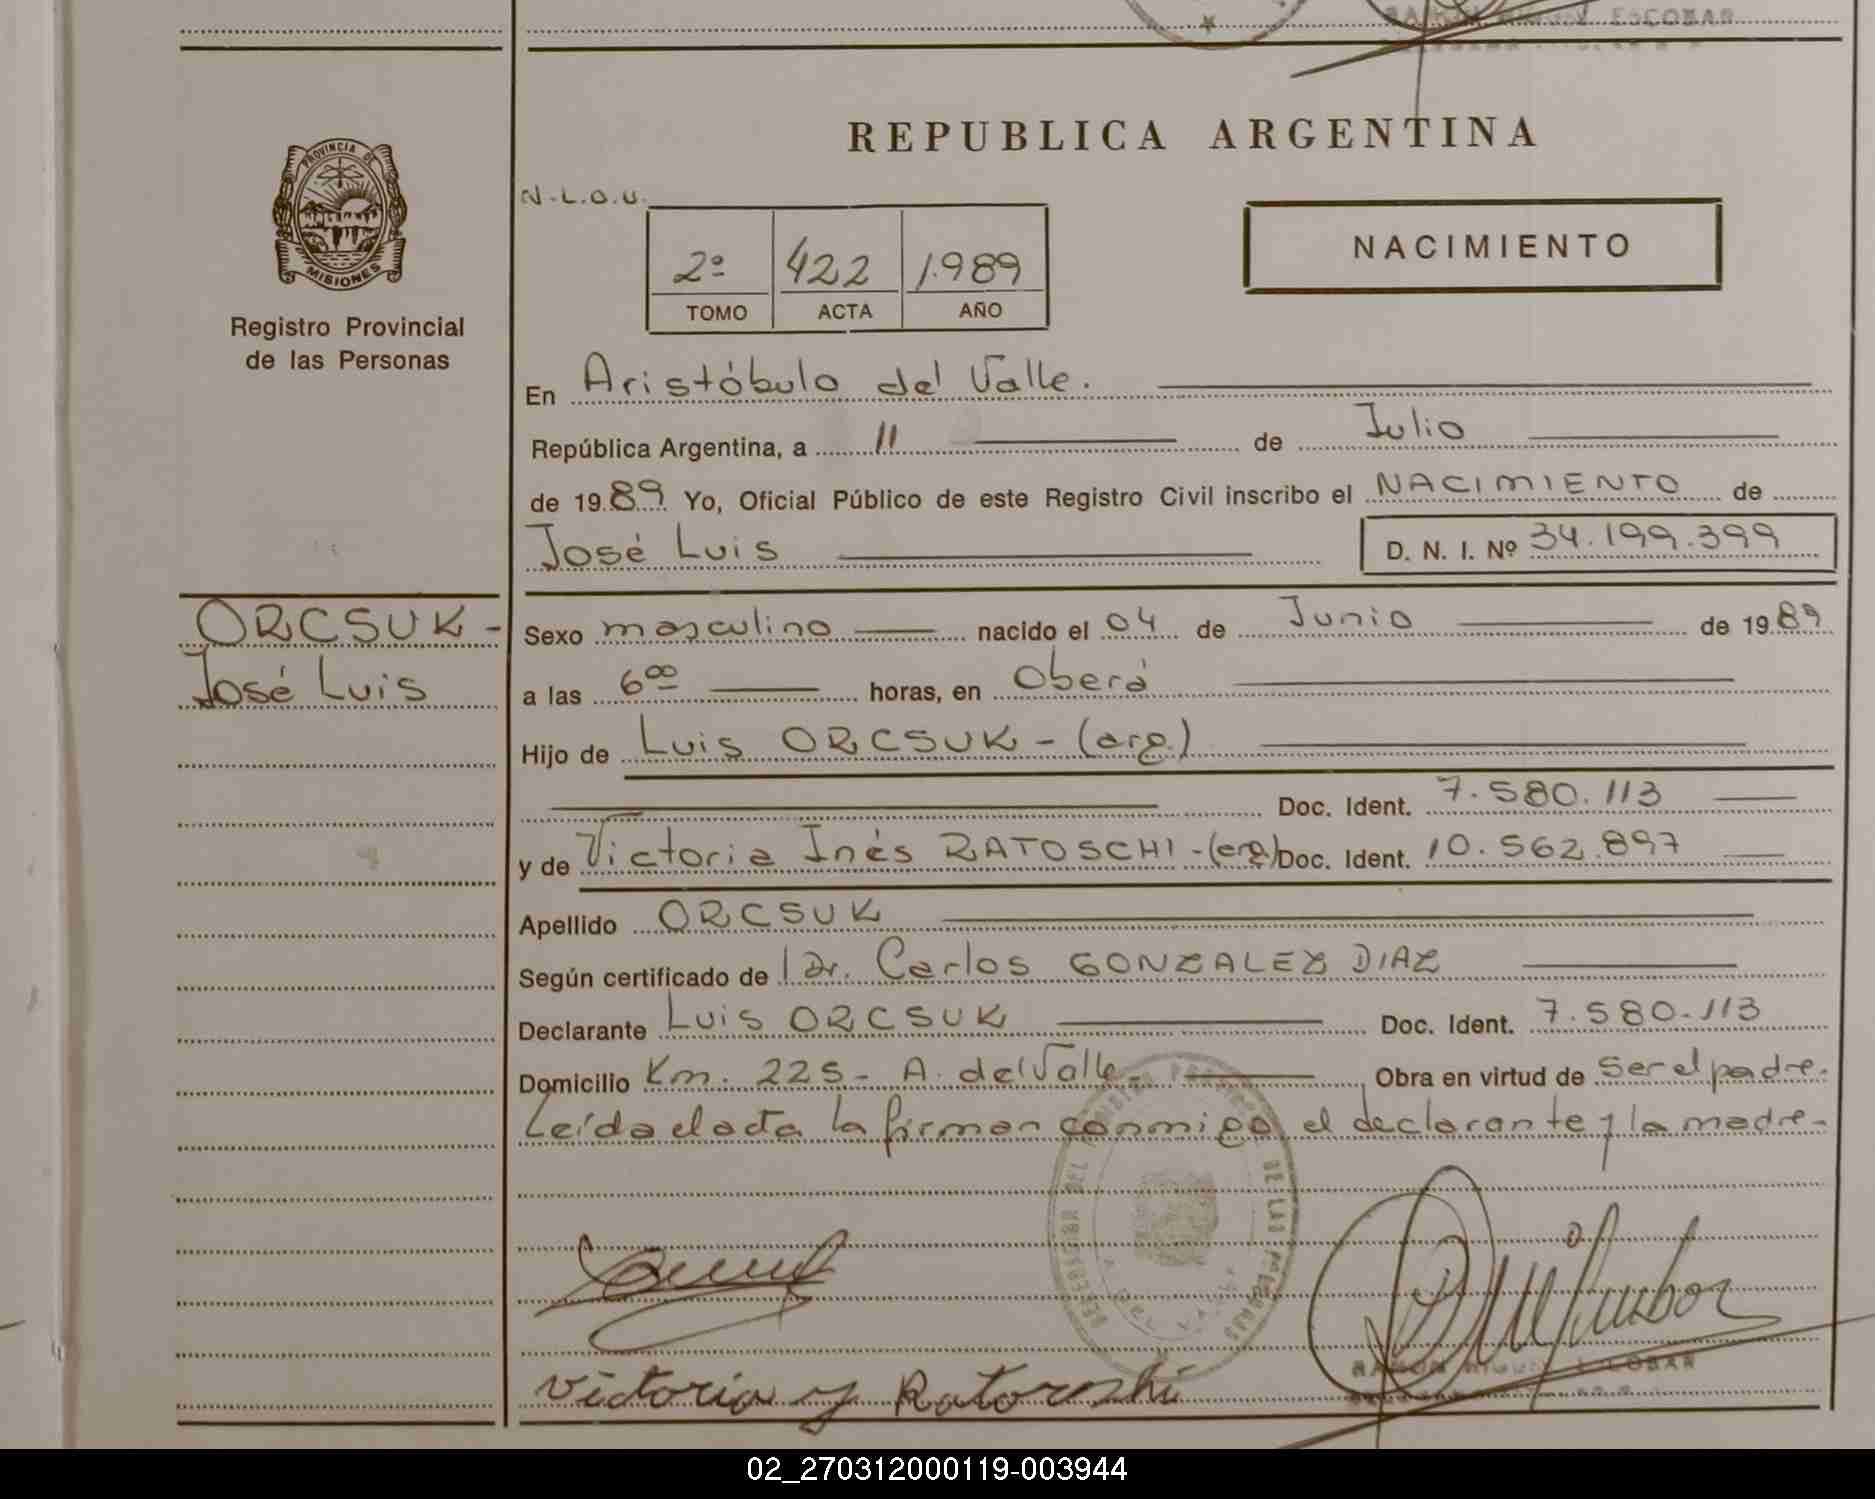 RAMON MIGUEL ESCOBAR
PROVINCIA DE
MISIONES
Registro Provincial
de las Personas
REPUBLICA ARGENTINA
N.L.O.U.
NACIMIENTO
2º 422 1.989
TOMO ACTA AÑO
En Aristóbulo del Valle.
República Argentina, a 11 de Julio
de 1989 Yo, Oficial Público de este Registro Civil inscribo el NACIMIENTO de
José Luis D. N. I. Nº 34.199.399
ORCSUK-
José Luis
Sexo masculino nacido el 04 de Junio de 1989
a las 6ºº horas, en Oberá
Hijo de Luis ORCSUK-(arg.)
Doc. Ident. 7.580.113
y de Victoria Inés RATOSCHI-(arg.) Doc. Ident. 10.562.897
Apellido ORCSUK
Según certificado de Dr. Carlos GONZALEZ DIAZ
Declarante Luis ORCSUK Doc. Ident. 7.580.113
Domicilio Km. 225- A. del Valle- Obra en virtud de ser el padre.
Leída el acta la firman conmigo el declarante y la madre-
DE LAS PERSONAS
A. DEL VALLE
Victoria y Ratoschi
RAMON MIGUEL ESCOBAR
02_270312000119-003944